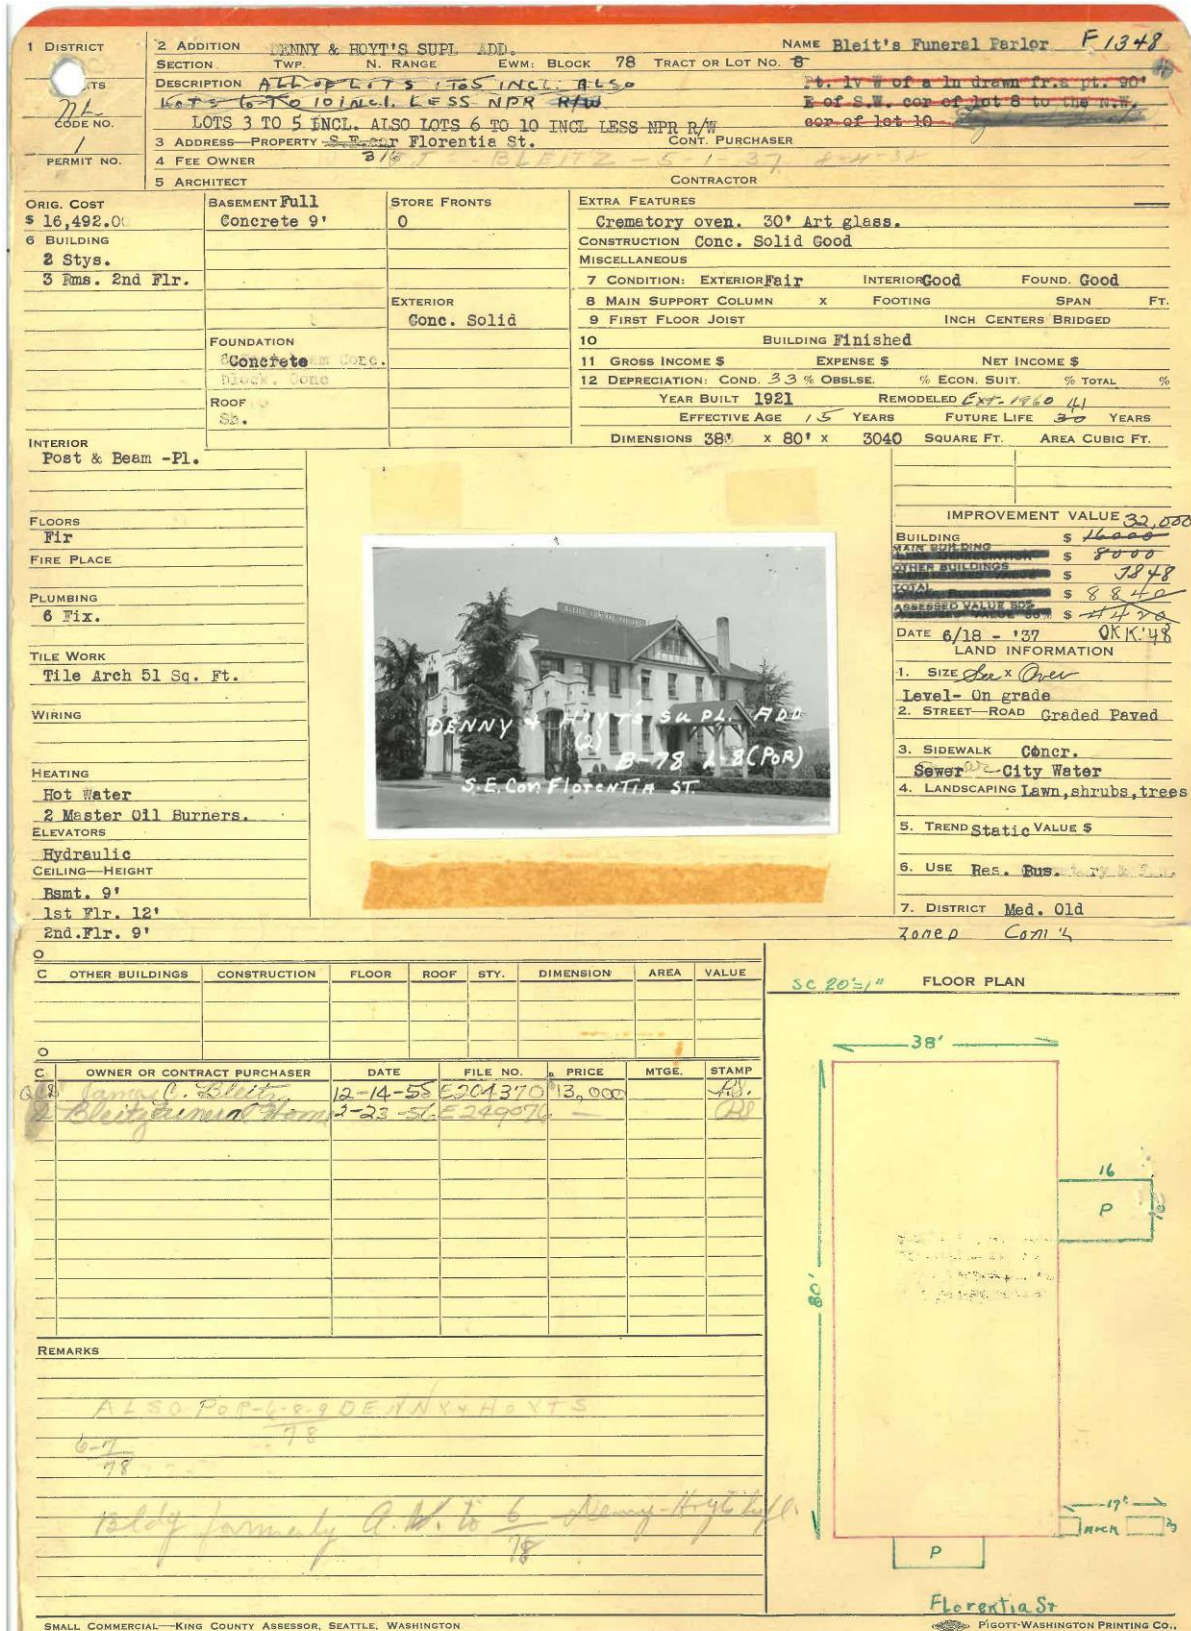 1 DISTRICT
2 ADDITION DENNY & HOYT'S SUPL ADD.
NAME Bleit's Funeral Parlor F1348
SECTION TWP. N. RANGE EWM: BLOCK 78 TRACT OR LOT NO. 8
DESCRIPTION ALL OF LOTS 1 TO 5 INCL. ALSO
Pt. ly W of a ln drawn fr.a pt. 90'
LOTS 6 TO 10 INCL. LESS NPR R/W
E of S.W. cor of lot 8 to the N.W.
CODE NO.
LOTS 3 TO 5 INCL. ALSO LOTS 6 TO 10 INCL LESS NPR R/W
cor of lot 10
1
PERMIT NO.
3 ADDRESS—PROPERTY S.E. cor Florentia St. CONT. PURCHASER
316
4 FEE OWNER BLEITZ - 5-1-37 8-4-38
5 ARCHITECT CONTRACTOR
ORIG. COST
$ 16,492.00
6 BUILDING
2 Stys.
3 Rms. 2nd Flr.
BASEMENT Full
Concrete 9'
FOUNDATION
Concrete
ROOF
Sh.
STORE FRONTS
0
EXTERIOR
Conc. Solid
EXTRA FEATURES
Crematory oven. 30' Art glass.
CONSTRUCTION Conc. Solid Good
MISCELLANEOUS
7 CONDITION: EXTERIOR Fair INTERIOR Good FOUND. Good
8 MAIN SUPPORT COLUMN X FOOTING SPAN FT.
9 FIRST FLOOR JOIST INCH CENTERS BRIDGED
10 BUILDING Finished
11 GROSS INCOME $ EXPENSE $ NET INCOME $
12 DEPRECIATION: COND. 33 % OBSLSE. % ECON. SUIT. % TOTAL %
YEAR BUILT 1921 REMODELED Ext-1960 41
EFFECTIVE AGE 15 YEARS FUTURE LIFE 30 YEARS
DIMENSIONS 38' X 80' X 3040 SQUARE FT. AREA CUBIC FT.
INTERIOR
Post & Beam -Pl.
FLOORS
Fir
FIRE PLACE
PLUMBING
6 Fix.
TILE WORK
Tile Arch 51 Sq. Ft.
WIRING
HEATING
Hot Water
2 Master Oil Burners.
ELEVATORS
Hydraulic
CEILING—HEIGHT
Bsmt. 9'
1st Flr. 12'
2nd.Flr. 9'
BLEITZ FUNERAL PARLORS
DENNY & HOYT'S SUPL. ADD
(2)
B-78 L-8(POR)
S.E. COR FLORENTIA ST.
IMPROVEMENT VALUE 32,000
BUILDING $ 16000
MAIN BUILDING $ 8000
OTHER BUILDINGS $ 7848
TOTAL $ 8840
ASSESSED VALUE 50% $ 4420
DATE 6/18 - '37 OK K.'48
LAND INFORMATION
1. SIZE See X Over
Level- On grade
2. STREET—ROAD Graded Paved
3. SIDEWALK Concr.
Sewer City Water
4. LANDSCAPING Lawn,shrubs,trees
5. TREND Static VALUE $
6. USE Res. Bus.
7. DISTRICT Med. Old
ZONED Com'l
O
C OTHER BUILDINGS CONSTRUCTION FLOOR ROOF STY. DIMENSION AREA VALUE
O
C OWNER OR CONTRACT PURCHASER DATE FILE NO. PRICE MTGE. STAMP
James C. Bleitz 12-14-55 E264370 $13,000
Bleitz Funeral Home 2-23-56 E249976 —
REMARKS
ALSO POR-6-8-9 DENNY & HOYTS
78
6-7
78
Bldg formerly A.W. to 6 Denny-Hoyt's
78
SC 20'=1" FLOOR PLAN
38'
80'
16
P
17'
ARCH
P
Florentia St
SMALL COMMERCIAL—KING COUNTY ASSESSOR, SEATTLE, WASHINGTON
PIGOTT-WASHINGTON PRINTING CO.,